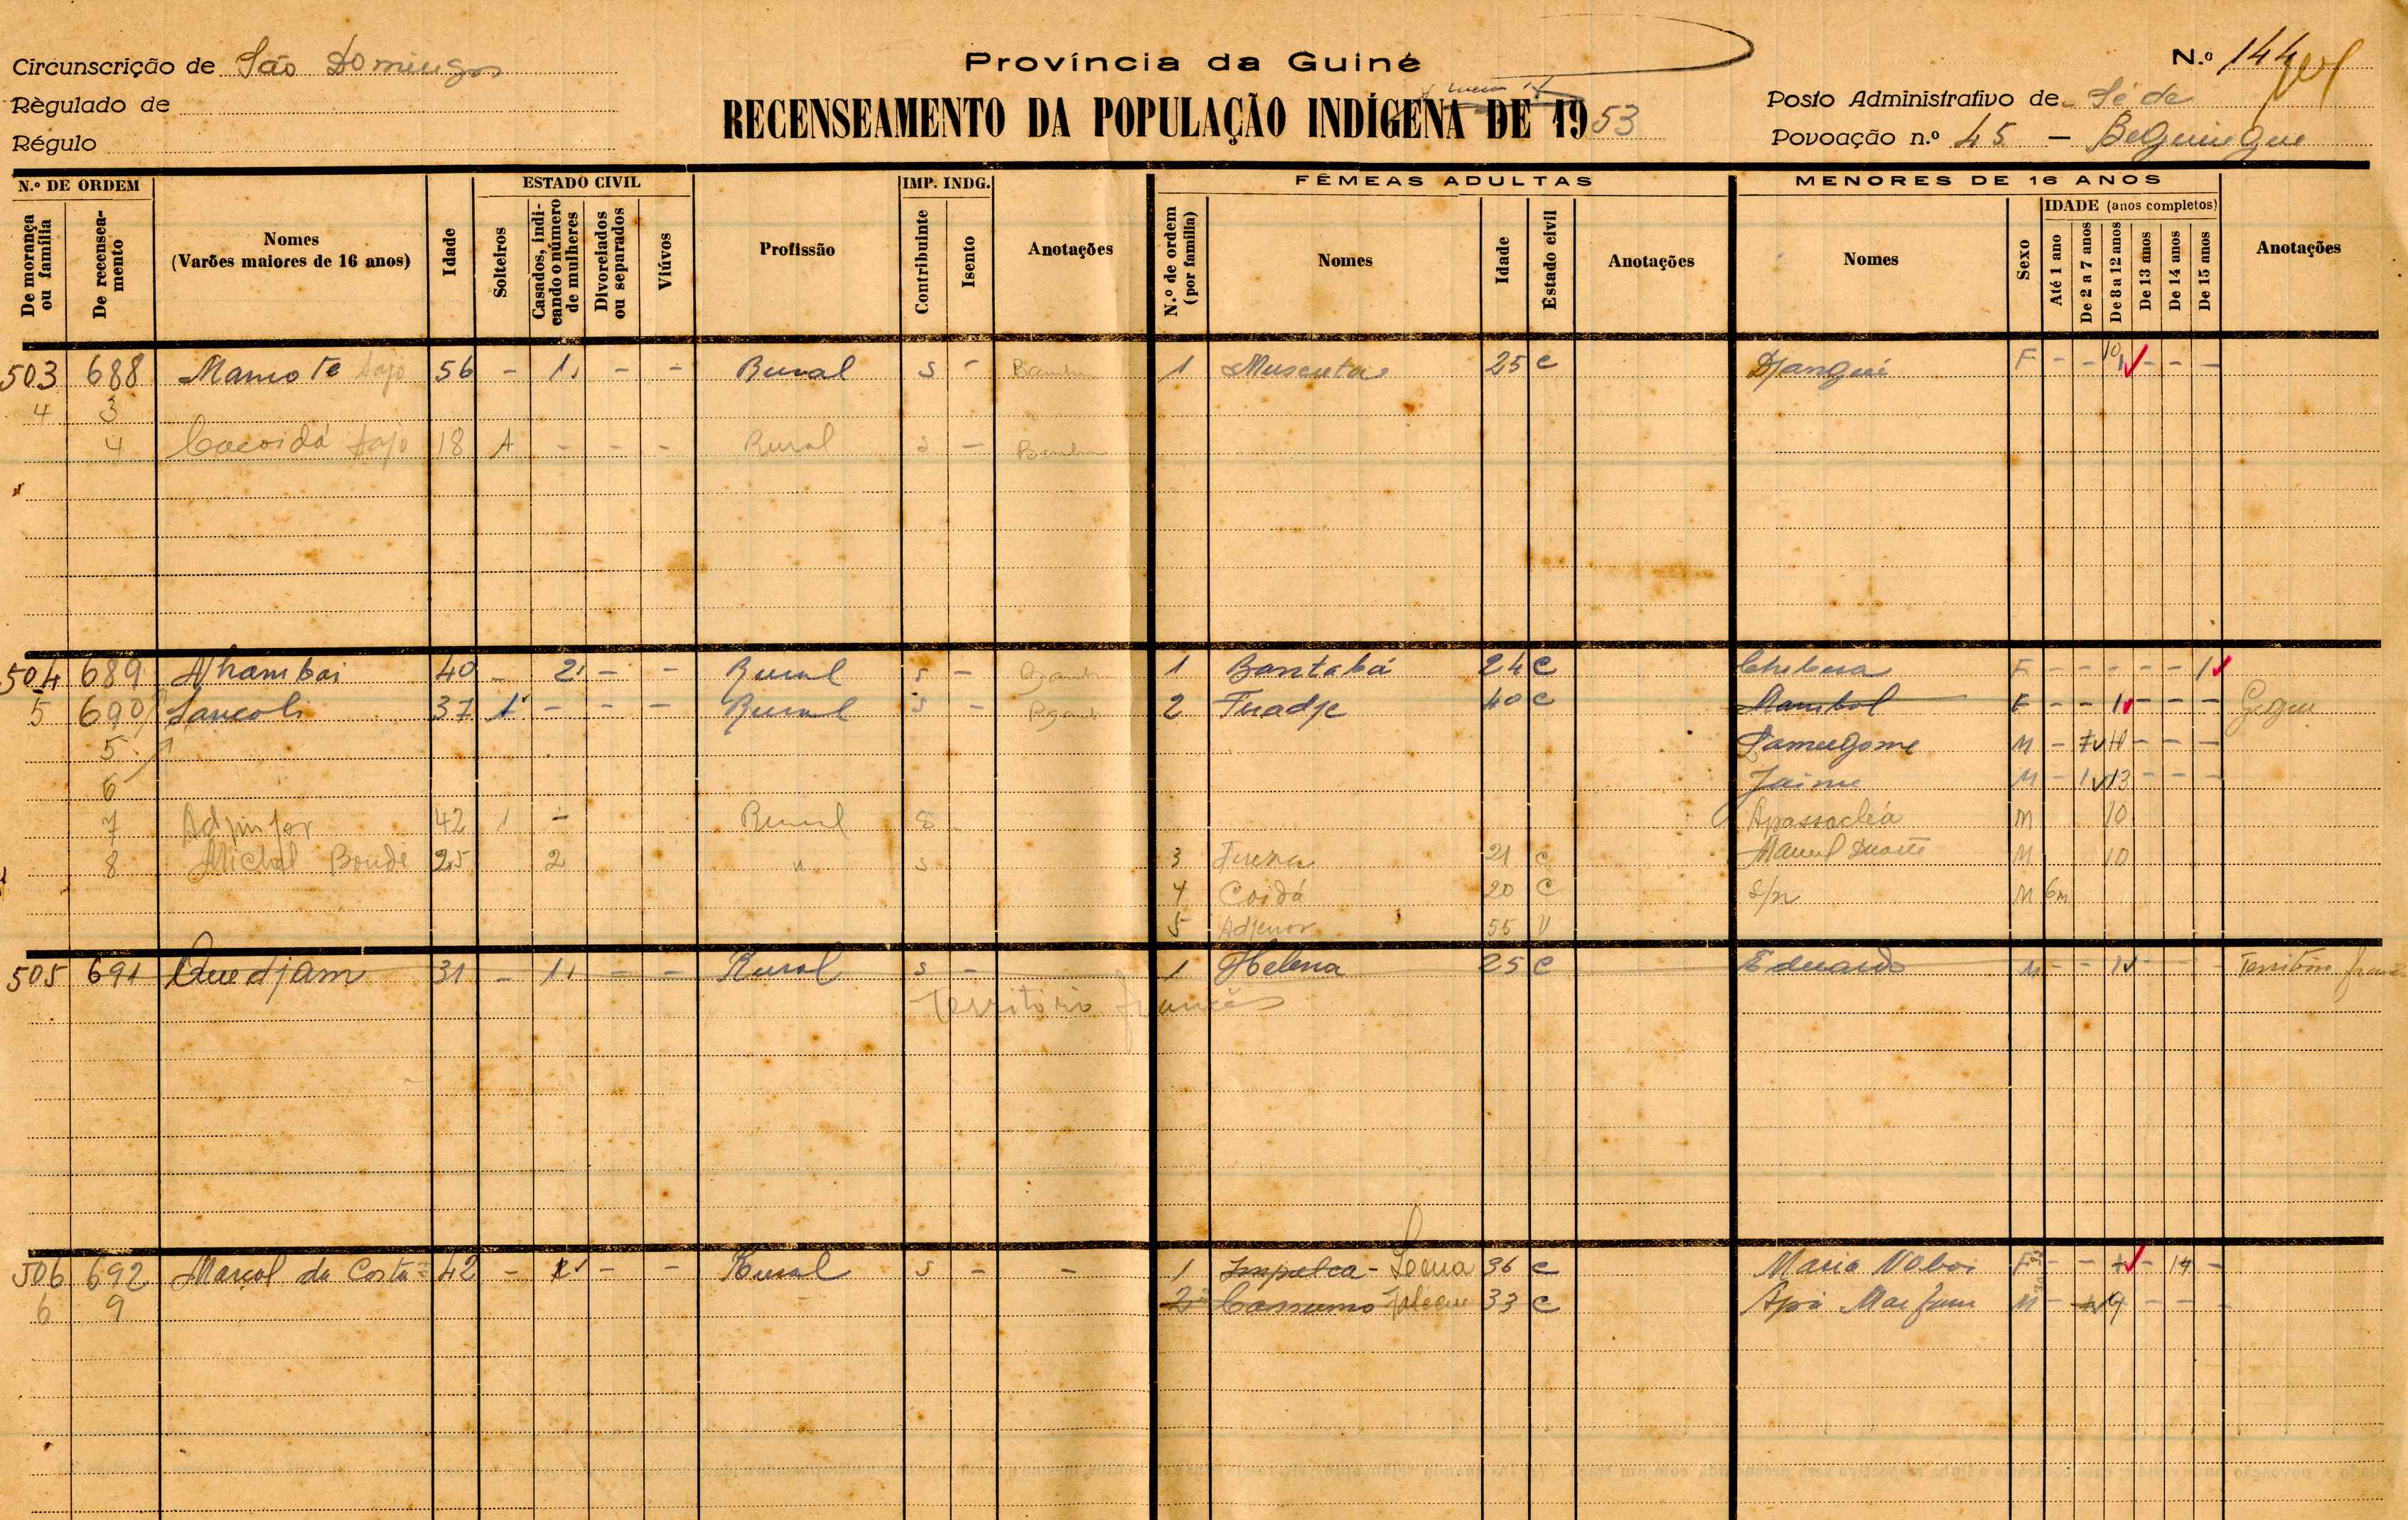 Província da Guiné
Circunscrição de São Domingos
N.º 144
Règulado de
RECENSEAMENTO DA POPULAÇÃO INDÍGENA DE 1953
Posto Administrativo de Séde
Régulo
Povoação n.º 45 —
N.º DE ORDEM ESTADO CIVIL IMP. INDG. FÊMEAS ADULTAS MENORES DE 16 ANOS
De morança ou família De recenseamento Nomes (Varões maiores de 16 anos) Idade Solteiros Casados, indicando o número de mulheres Divorciados ou separados Viúvos Profissão Contribuinte Isento Anotações N.º de ordem (por família) Nomes Idade Estado civil Anotações Nomes Sexo IDADE (anos completos) Até 1 ano De 2 a 7 anos De 8 a 12 anos De 13 anos De 14 anos De 15 anos Anotações
503 688 Mamote 56 - 1 - - Rural S - 1 25 C Djangui F - - 10 1 - - -
4 3
4 18 - - - Rural S -
504 689 Nhambai 40 - 2 - - Rural S - 1 Bontabá 24 C F - - - - - 1
5 690 37 1 - - - Rural S - 2 Tuadje 40 C Mambol F - - 1 - - -
5 M - - - -
6 Jaime M - 1 13 - - -
7 42 1 - Rural S - M 10
8 Michel 25 2 " S 3 21 C Manuel Duarte M 10
4 Coidá 20 C S/n M 6m
5 Adjenor 55 V
505 691 Quedjam 31 - 1 - - Rural S - 1 Helena 25 C Eduardo M - - 1 - - -
Território francês
506 692 Marçal da Costa 42 - - - Rural S - - 1 36 C Maria F - - - 14 -
6 9 2 33 C M - 9 - - -